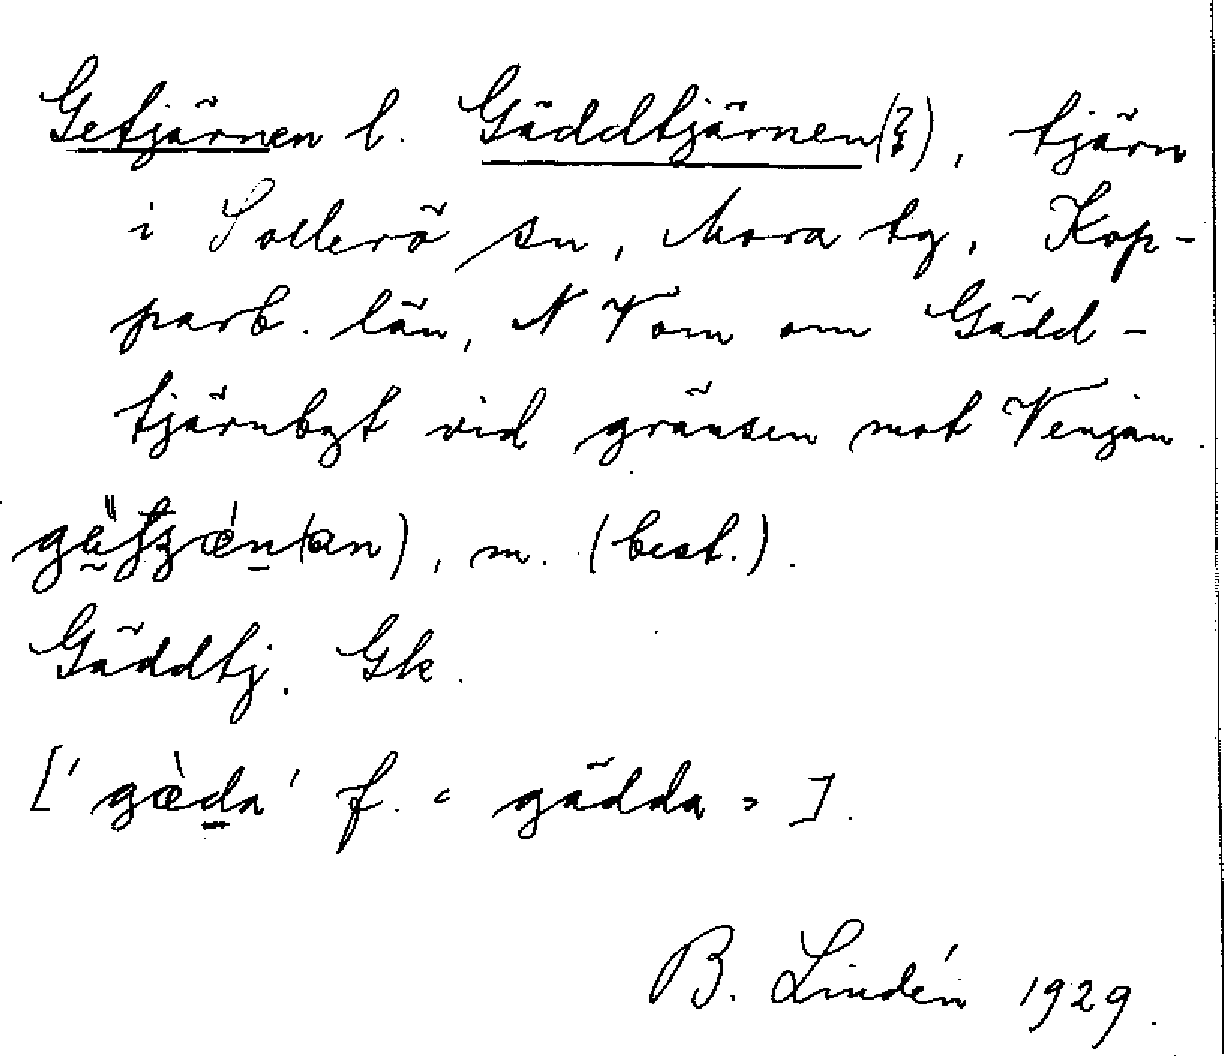 Getjärnen l. Gäddtjärnen(?), tjärn
i Sollerö sn, Mora tg, Kop-
parb. län, N Vom om Gädd-
tjärnbyt vid gränsen mot Venjan.
m. (best.).
Gäddtj. Gk.
['gæ̀da' f. ‹ gädda › ].
B. Lindén 1929.